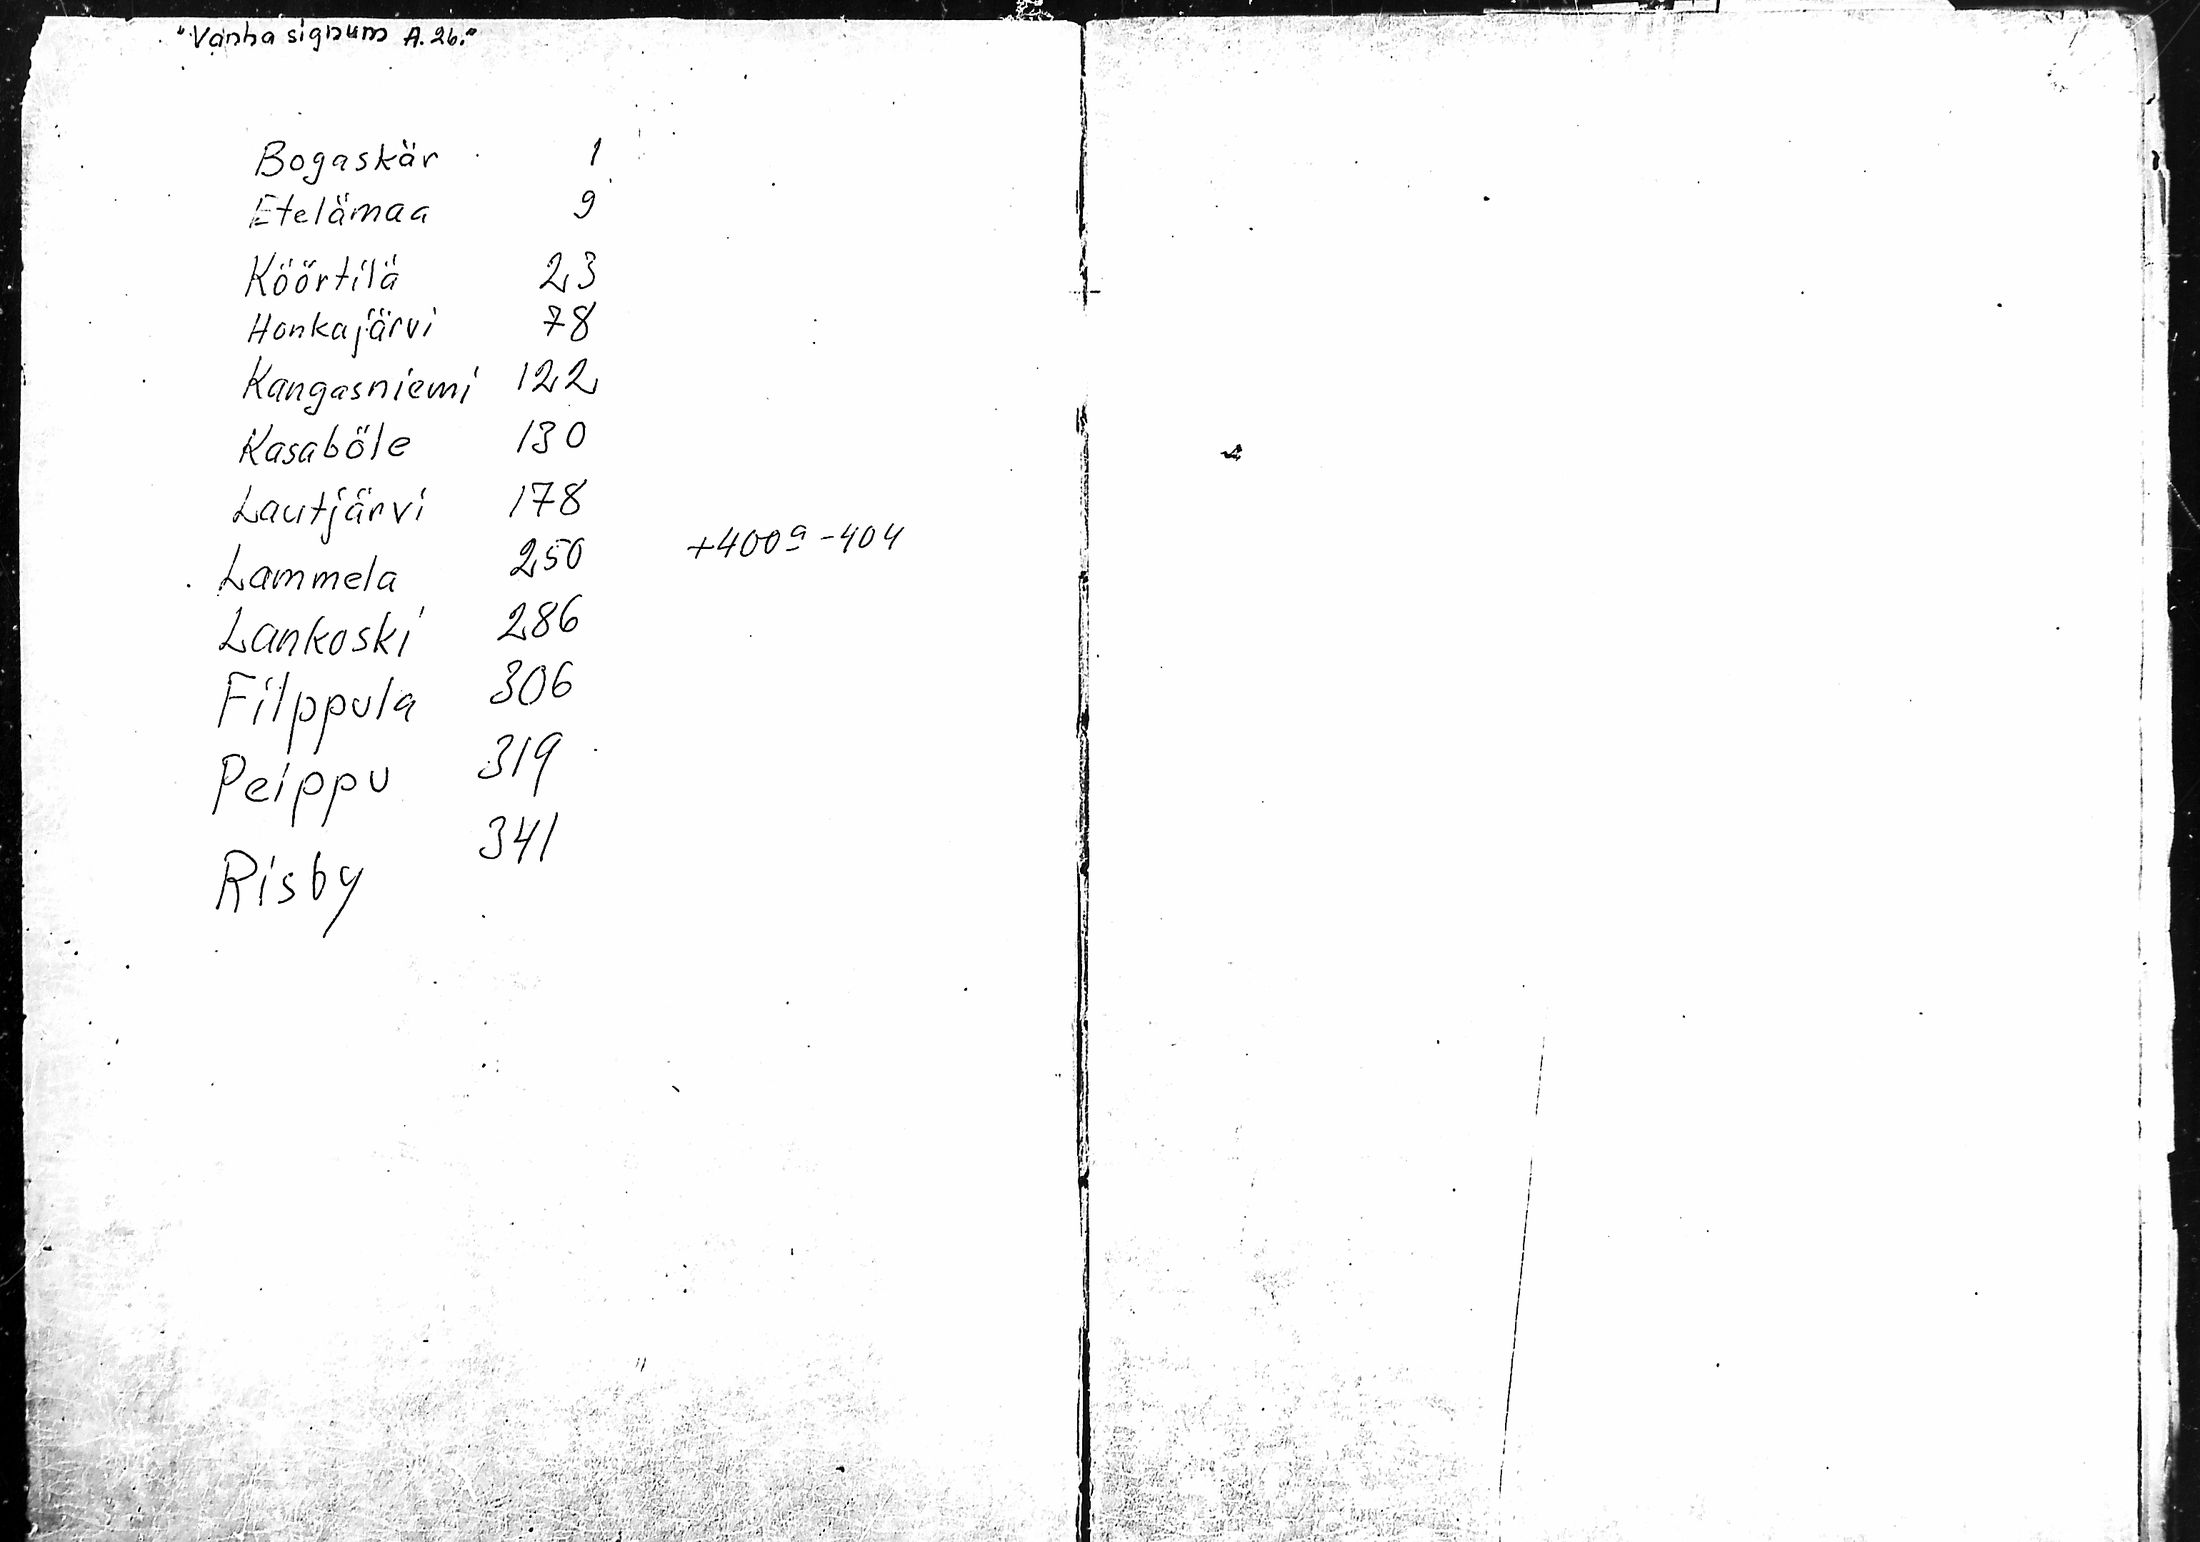 "Vanha signum A.26."
Bogaskär 1
Etelämaa 9
Köörtilä 23
Honkajärvi 78
Kangasniemi 122
Kasaböle 130
Lautjärvi 178
Lammela 250 +400a-404
Lankoski 286
Filppula 306
Peippu 319
Risby 341